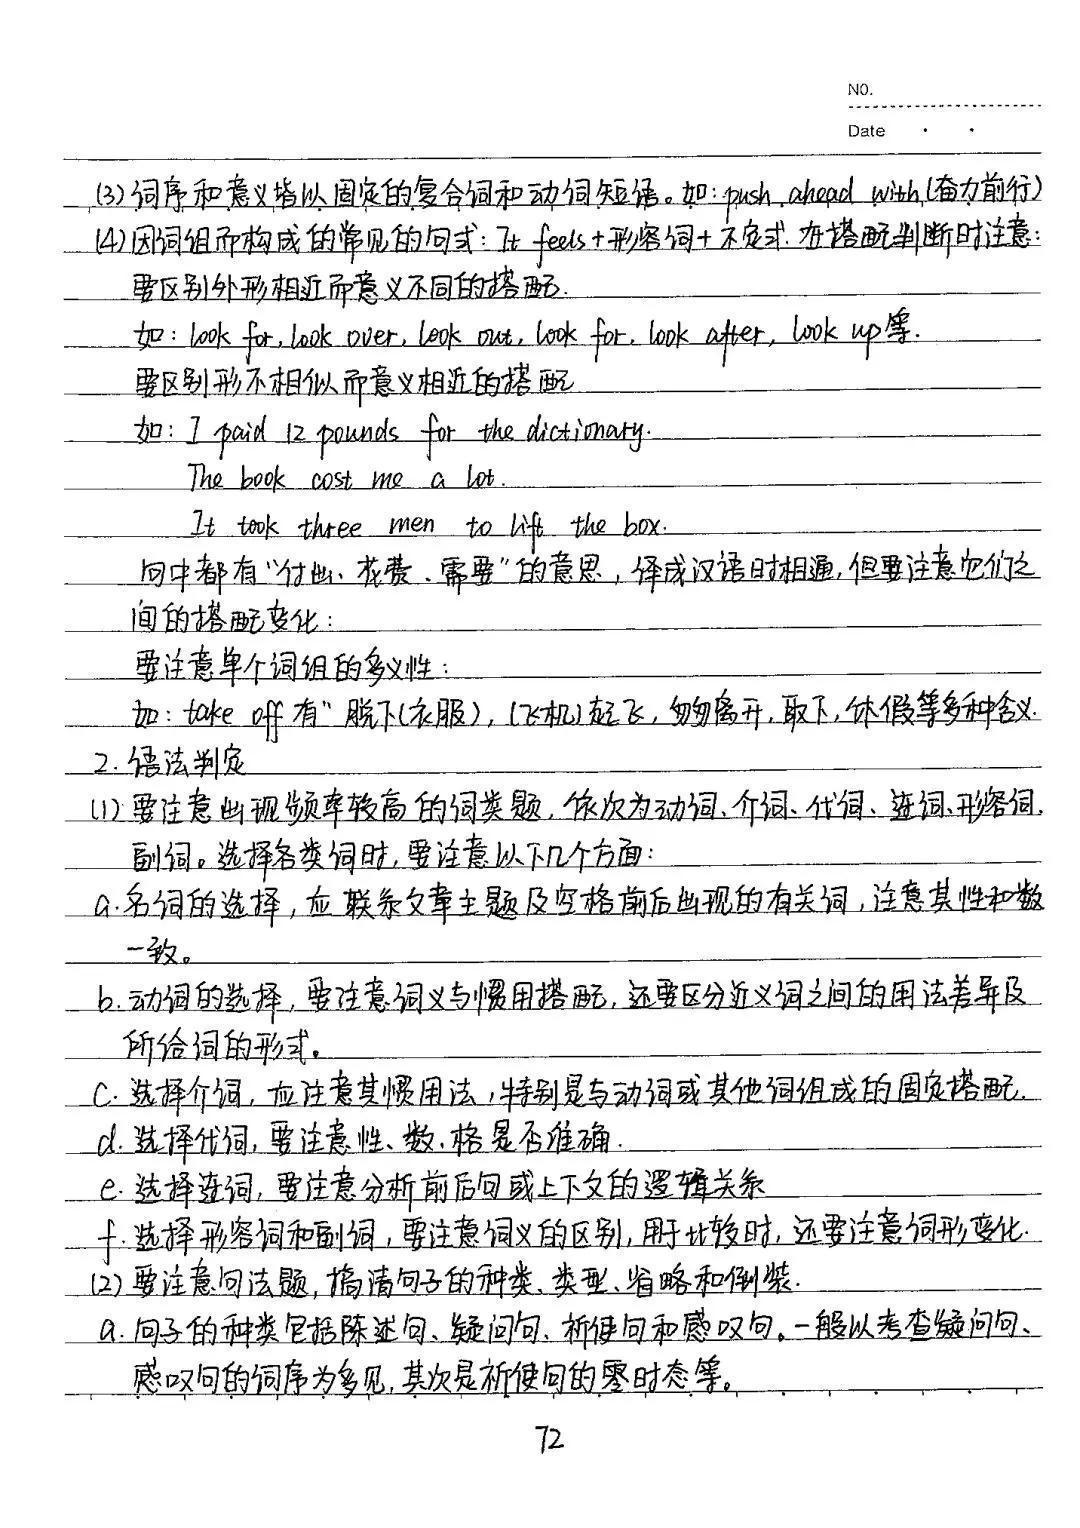 NO.
Date · ·
(3)词序和意义皆以固定的复合词和动词短语。如:push ahead with(奋力前行)
(4)因词组而构成的常见的句式:It feels+形容词+不定式.在搭配判断时注意:
要区别外形相近而意义不同的搭配.
如:look for,look over,look out,look for,look after,look up等.
要区别形不相似而意义相近的搭配
如:I paid 12 pounds for the dictionary.
The book cost me a lot.
It took three men to lift the box.
句中都有“付出、花费、需要”的意思,译成汉语时相通,但要注意它们之
间的搭配变化:
要注意单个词组的多义性:
如:take off有“脱下(衣服),(飞机)起飞,匆匆离开,取下,休假等多种含义.
2.语法判定
(1)要注意出现频率较高的词类题,依次为动词、介词、代词、连词、形容词.
副词。选择各类词时,要注意以下几个方面:
a.名词的选择,应联系文章主题及空格前后出现的有关词,注意其性和数
一致。
b.动词的选择,要注意词义与惯用搭配,还要区分近义词之间的用法差异及
所给词的形式。
c.选择介词,应注意其惯用法,特别是与动词或其他词组成的固定搭配.
d.选择代词,要注意性、数、格是否准确.
e.选择连词,要注意分析前后句或上下文的逻辑关系
f.选择形容词和副词,要注意词义的区别,用于比较时,还要注意词形变化.
(2)要注意句法题,搞清句子的种类、类型、省略和倒装.
a.句子的种类包括陈述句、疑问句、祈使句和感叹句。一般以考查疑问句、
感叹句的词序为多见,其次是祈使句的零时态等。
72